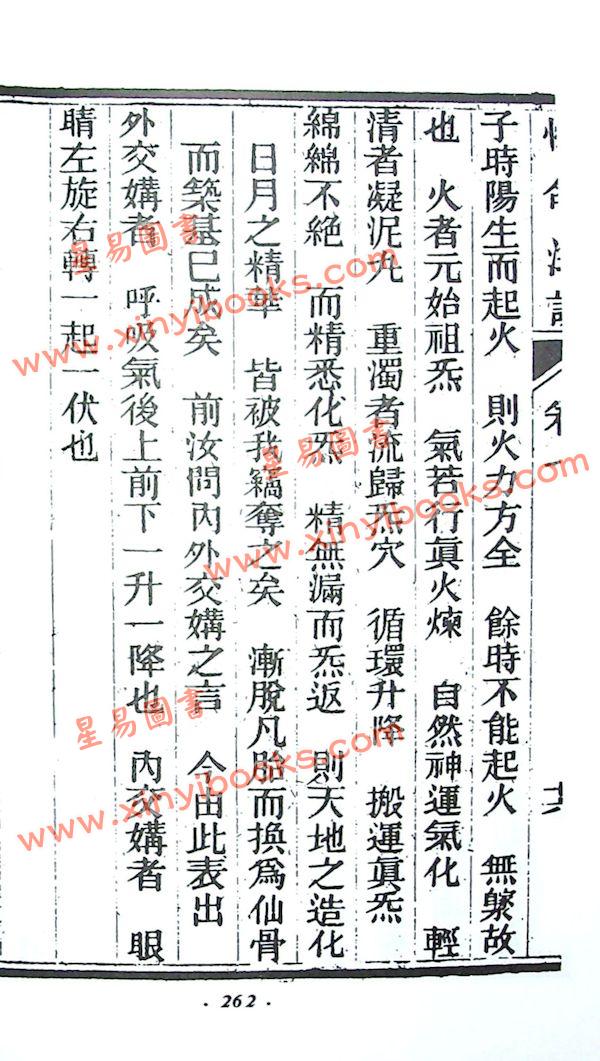 子時陽生而起火 則火力方全 餘時不能起火 無藥故
也 火者元始祖炁 氣若行眞火煉 自然神運氣化 輕
清者凝泥丸 重濁者流歸炁穴 循環升降 搬運眞炁
綿綿不絕 而精悉化炁 精無漏而炁返 則天地之造化
日月之精華 皆被我竊奪之矣 漸脫凡胎而換爲仙骨
而築基已成矣 前汝問內外交媾之言 今由此表出
外交媾者 呼吸氣後上前下一升一降也 內交媾者 眼
睛左旋右轉一起一伏也
· 262 ·
星易圖書
www.xinyibooks.com
星易圖書
www.xinyibooks.com
星易圖書
www.xinyibooks.com